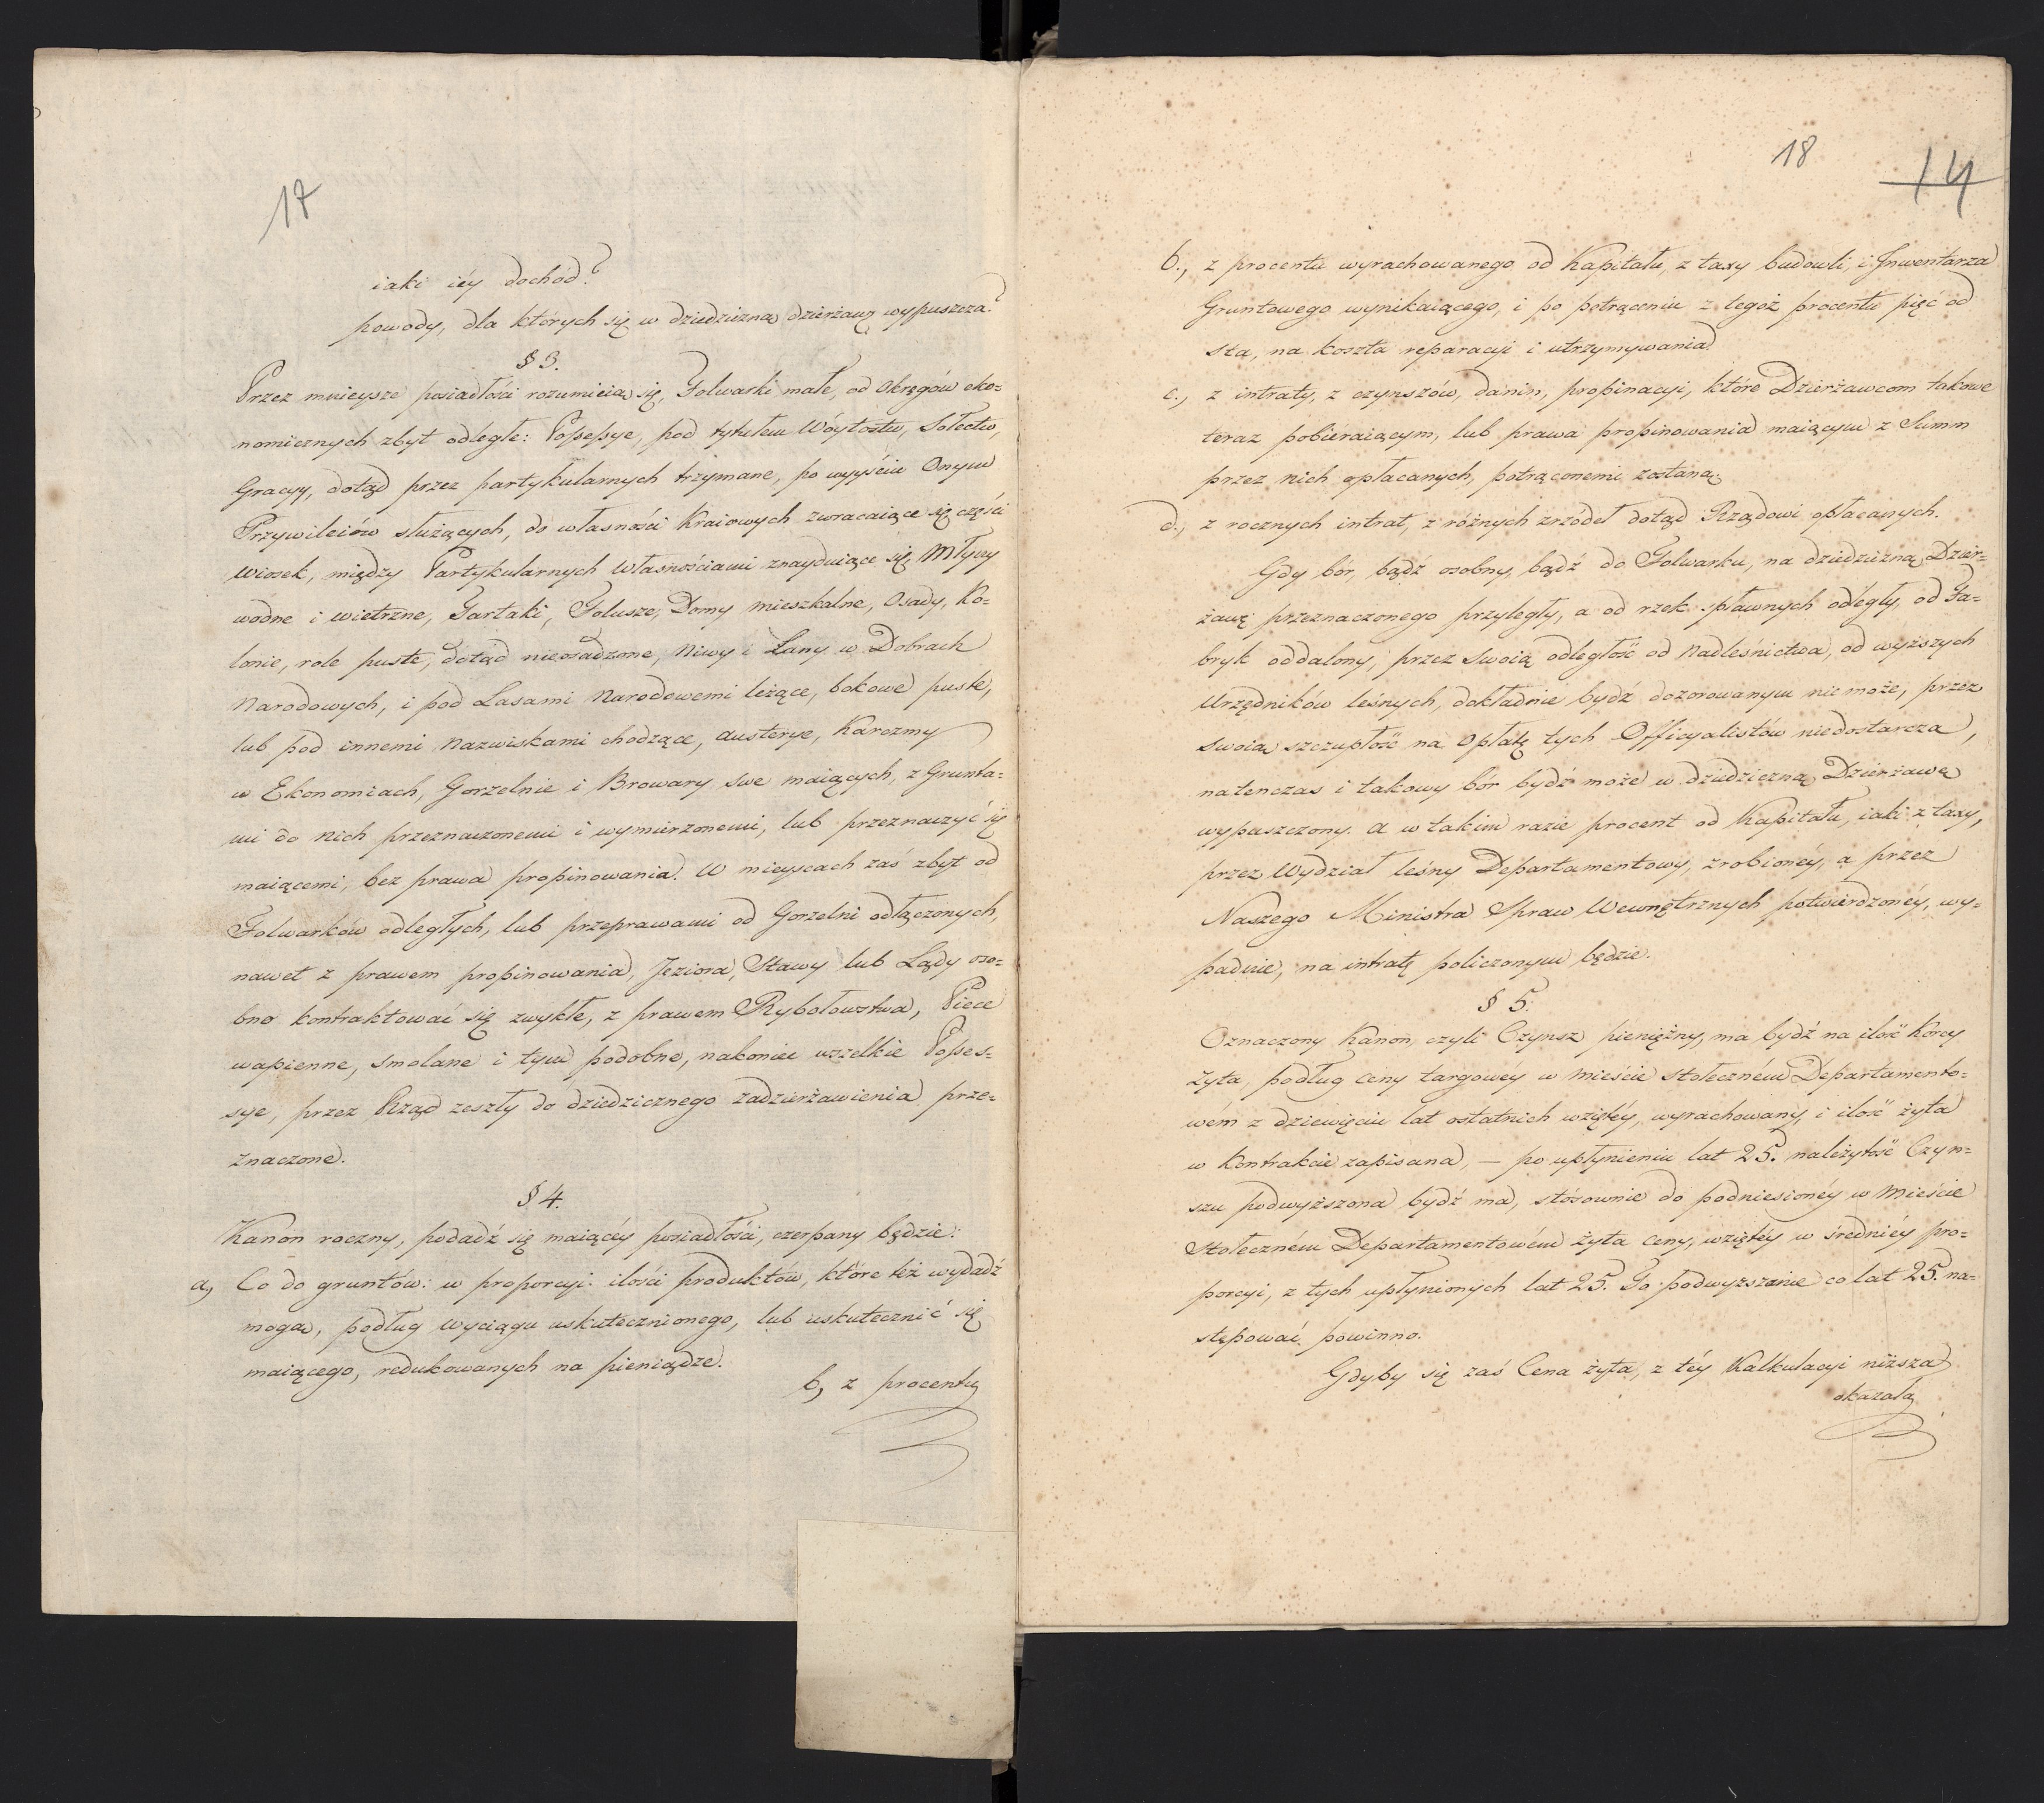 17
iaki iéy dochód?
powody, dla których się w dziedziczną dzierżawę wypuszcza?
§ 3.
Przez mnieysze posiadłości rozumieią się, Folwarki małe, od Okręgów eko=
nomicznych zbyt odległe: Possessye, pod tytułem Wóytostw, Sołectw,
Gracyy, dotąd przez partykularnych trzymane, po wyyściu Onym
Przywileiów służących, do własności Kraiowych zwracaiące się części
Wiosek, między Partykularnych Własnościami znayduiące się, Młyny
wodne i wietrzne, Tartaki, Folusze, Domy mieszkalne, Osady, Ko=
lonie, role puste, dotąd nieosadzone, Niwy i Łany w Dobrach
Narodowych, i pod Lasami Narodowemi leżące, bokowe puste,
lub pod innemi Nazwiskami chodzące, austerye, Karczmy
w Ekonomiach, Gorzelnie i Browary swe maiących, z Grunta=
mi do nich przeznaczonemi i wymierzonemi, lub przeznaczyć się
maiącemi, bez prawa propinowania. W mieyscach zaś zbyt od
Folwarków odległych, lub przeprawami od Gorzelni odłączonych,
nawet z prawem propinowania, Jeziora, Stawy lub Lądy oso=
bno kontraktować się zwykłe, z prawem Rybołowstwa, Piece
wapienne, smolane i tym podobne, nakoniec wszelkie Posses=
sye, przez Rząd zeszły do dziedzicznego zadzierżawienia prze=
znaczone.
§ 4.
Kanon roczny, podadź się maiącéy posiadłości, czerpany będzie:
a, Co do gruntów: w proporcyi ilości produktów, które też wydadź
mogą, podług wyciągu uskutecznionego, lub uskutecznić się
maiącego, redukowanych na pieniądze.
b, z procentu
18
14
b., z procentu wyrachowanego od Kapitału, z taxy budowli, i Inwentarza
Gruntowego wynikaiącego, i po potrąceniu z tegoż procentu pięć od
sta, na koszta reparacyi i utrzymywania.
c., z intraty, z czynszów, danin, propinacyi, które Dzierżawcom takowe
teraz pobiéraiącym, lub prawa propinowania maiącym z Summ
przez nich opłacanych, potrąconemi zostaną.
d., z rocznych intrat, z różnych źrzódeł dotąd Rządowi opłacanych.
Gdy bór, bądź osobny, bądź do Folwarku, na dziedziczną Dzier=
żawę przeznaczonego przyległy, a od rzek spławnych odległy, od Fa=
bryk oddalony, przez swoią odległość od Nadleśnictwa, od wyższych
Urzędników leśnych, dokładnie bydź dozorowanym nie może, przez
swoią szczupłość na opłatę tych Officyalistów niedostarcza,
natenczas i takowy bór bydź może w dziedziczną Dzierżawę
wypuszczony. a w takim razie procent od Kapitału, iaki z taxy,
przez Wydział leśny Departamentowy, zrobionéy, a przez
Naszego Ministra Spraw Wewnętrznych potwierdzonéy, wy=
padnie, na intratę policzonym będzie.
§ 5.
Oznaczony Kanon, czyli Czynsz pieniężny, ma bydź na ilość Korcy
żyta, podług ceny targowéy w mieście stołeczném Departamento=
wém z dziewięciu lat ostatnich wziętéy, wyrachowany, i ilość żyta
w Kontrakcie zapisana, — po upłynieniu lat 25. należytość Czyn=
szu podwyższona bydź ma, stósownie do podniesionéy w Mieście
Stołeczném Departamentowém żyta ceny, wziętéy w średniéy pro=
porcyi, z tych upłynionych lat 25. To podwyższanie co lat 25. na=
stępować powinno.
Gdyby się zaś Cena żyta, z téy Kalkulacyi niższą
okazała